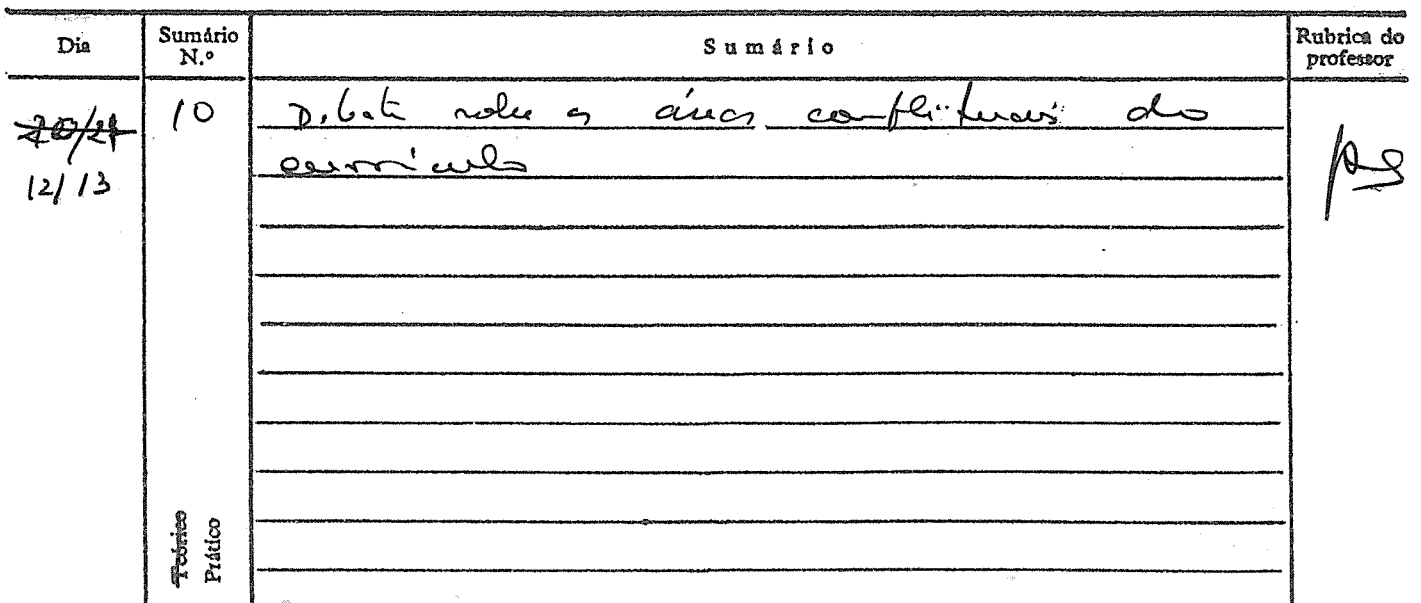 Dia
Sumário N.º
Sumário
Rubrica do professor
20/21
10
Debate sobre as áreas conflituais do
12/13
currículo
Teórico
Prático